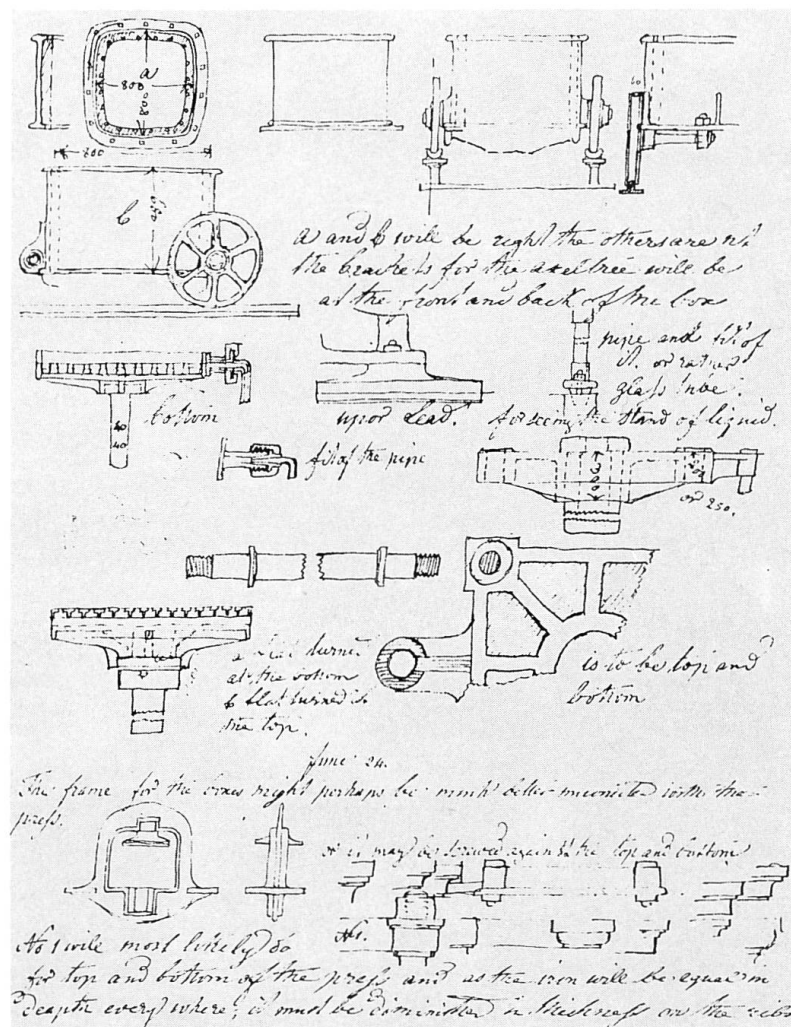 a
800
800
800
b
450
a and b will be right the others are not
the brackets for the axeltree will be
at the front and back of the box
pipe and
of
it. or rather
glass tube.
for seeing the stand of liquid.
bottom
40
40
upor Lead.
of the pipe
300
200
or 250.
a flat turned
at the bottom
b flat turned is
the top.
is to be top and
bottom
June 24.
The frame for the boxes might perhaps be much better with the
press.
or it may be screwed against the top and bottom
No 1 will most likely do
No 1.
for top and bottom of the press and as the iron will be equal in
deapth every where, it must be diminished in thickness on the ribs